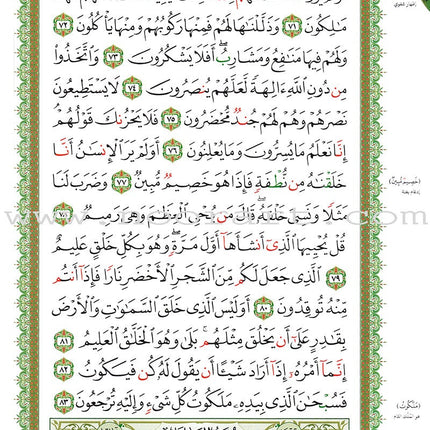 مَٰلِكُونَ ٧١ وَذَلَّلْنَٰهَا لَهُمْ فَمِنْهَا رَكُوبُهُمْ وَمِنْهَا يَأْكُلُونَ ٧٢
وَلَهُمْ فِيهَا مَنَٰفِعُ وَمَشَارِبُ ۖ أَفَلَا يَشْكُرُونَ ٧٣ وَٱتَّخَذُوا۟
مِن دُونِ ٱللَّهِ ءَالِهَةً لَّعَلَّهُمْ يُنصَرُونَ ٧٤ لَا يَسْتَطِيعُونَ
نَصْرَهُمْ وَهُمْ لَهُمْ جُندٌ مُّحْضَرُونَ ٧٥ فَلَا يَحْزُنكَ قَوْلُهُمْ ۘ
إِنَّا نَعْلَمُ مَا يُسِرُّونَ وَمَا يُعْلِنُونَ ٧٦ أَوَلَمْ يَرَ ٱلْإِنسَٰنُ أَنَّا
خَلَقْنَٰهُ مِن نُّطْفَةٍ فَإِذَا هُوَ خَصِيمٌ مُّبِينٌ ٧٧ وَضَرَبَ لَنَا
مَثَلًا وَنَسِىَ خَلْقَهُۥ ۖ قَالَ مَن يُحْىِ ٱلْعِظَٰمَ وَهِىَ رَمِيمٌ ٧٨
قُلْ يُحْيِيهَا ٱلَّذِىٓ أَنشَأَهَآ أَوَّلَ مَرَّةٍ ۖ وَهُوَ بِكُلِّ خَلْقٍ عَلِيمٌ
٧٩ ٱلَّذِى جَعَلَ لَكُم مِّنَ ٱلشَّجَرِ ٱلْأَخْضَرِ نَارًا فَإِذَآ أَنتُم
مِّنْهُ تُوقِدُونَ ٨٠ أَوَلَيْسَ ٱلَّذِى خَلَقَ ٱلسَّمَٰوَٰتِ وَٱلْأَرْضَ
بِقَٰدِرٍ عَلَىٰٓ أَن يَخْلُقَ مِثْلَهُم ۚ بَلَىٰ وَهُوَ ٱلْخَلَّٰقُ ٱلْعَلِيمُ ٨١
إِنَّمَآ أَمْرُهُۥٓ إِذَآ أَرَادَ شَيْـًٔا أَن يَقُولَ لَهُۥ كُن فَيَكُونُ ٨٢
فَسُبْحَٰنَ ٱلَّذِى بِيَدِهِۦ مَلَكُوتُ كُلِّ شَىْءٍ وَإِلَيْهِ تُرْجَعُونَ ٨٣
(خَصِيمٌ مُّبِينٌ)
(مَلَكُوتُ)